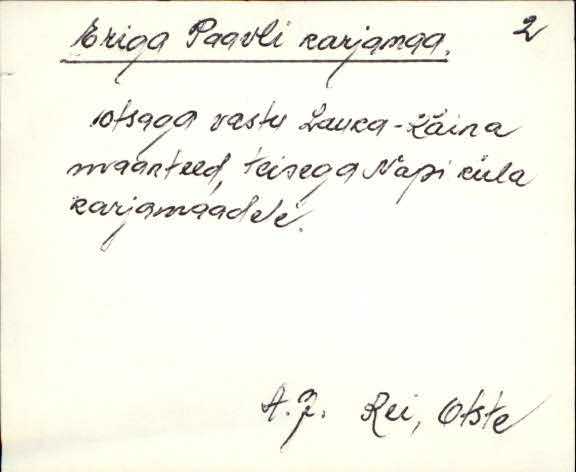 Eriga Paavli karjamaa. 2
otsaga vastu Lauka-Käina
maanteed, teisega Napi küla
karjamaadele.
A. J. Rei, Otste